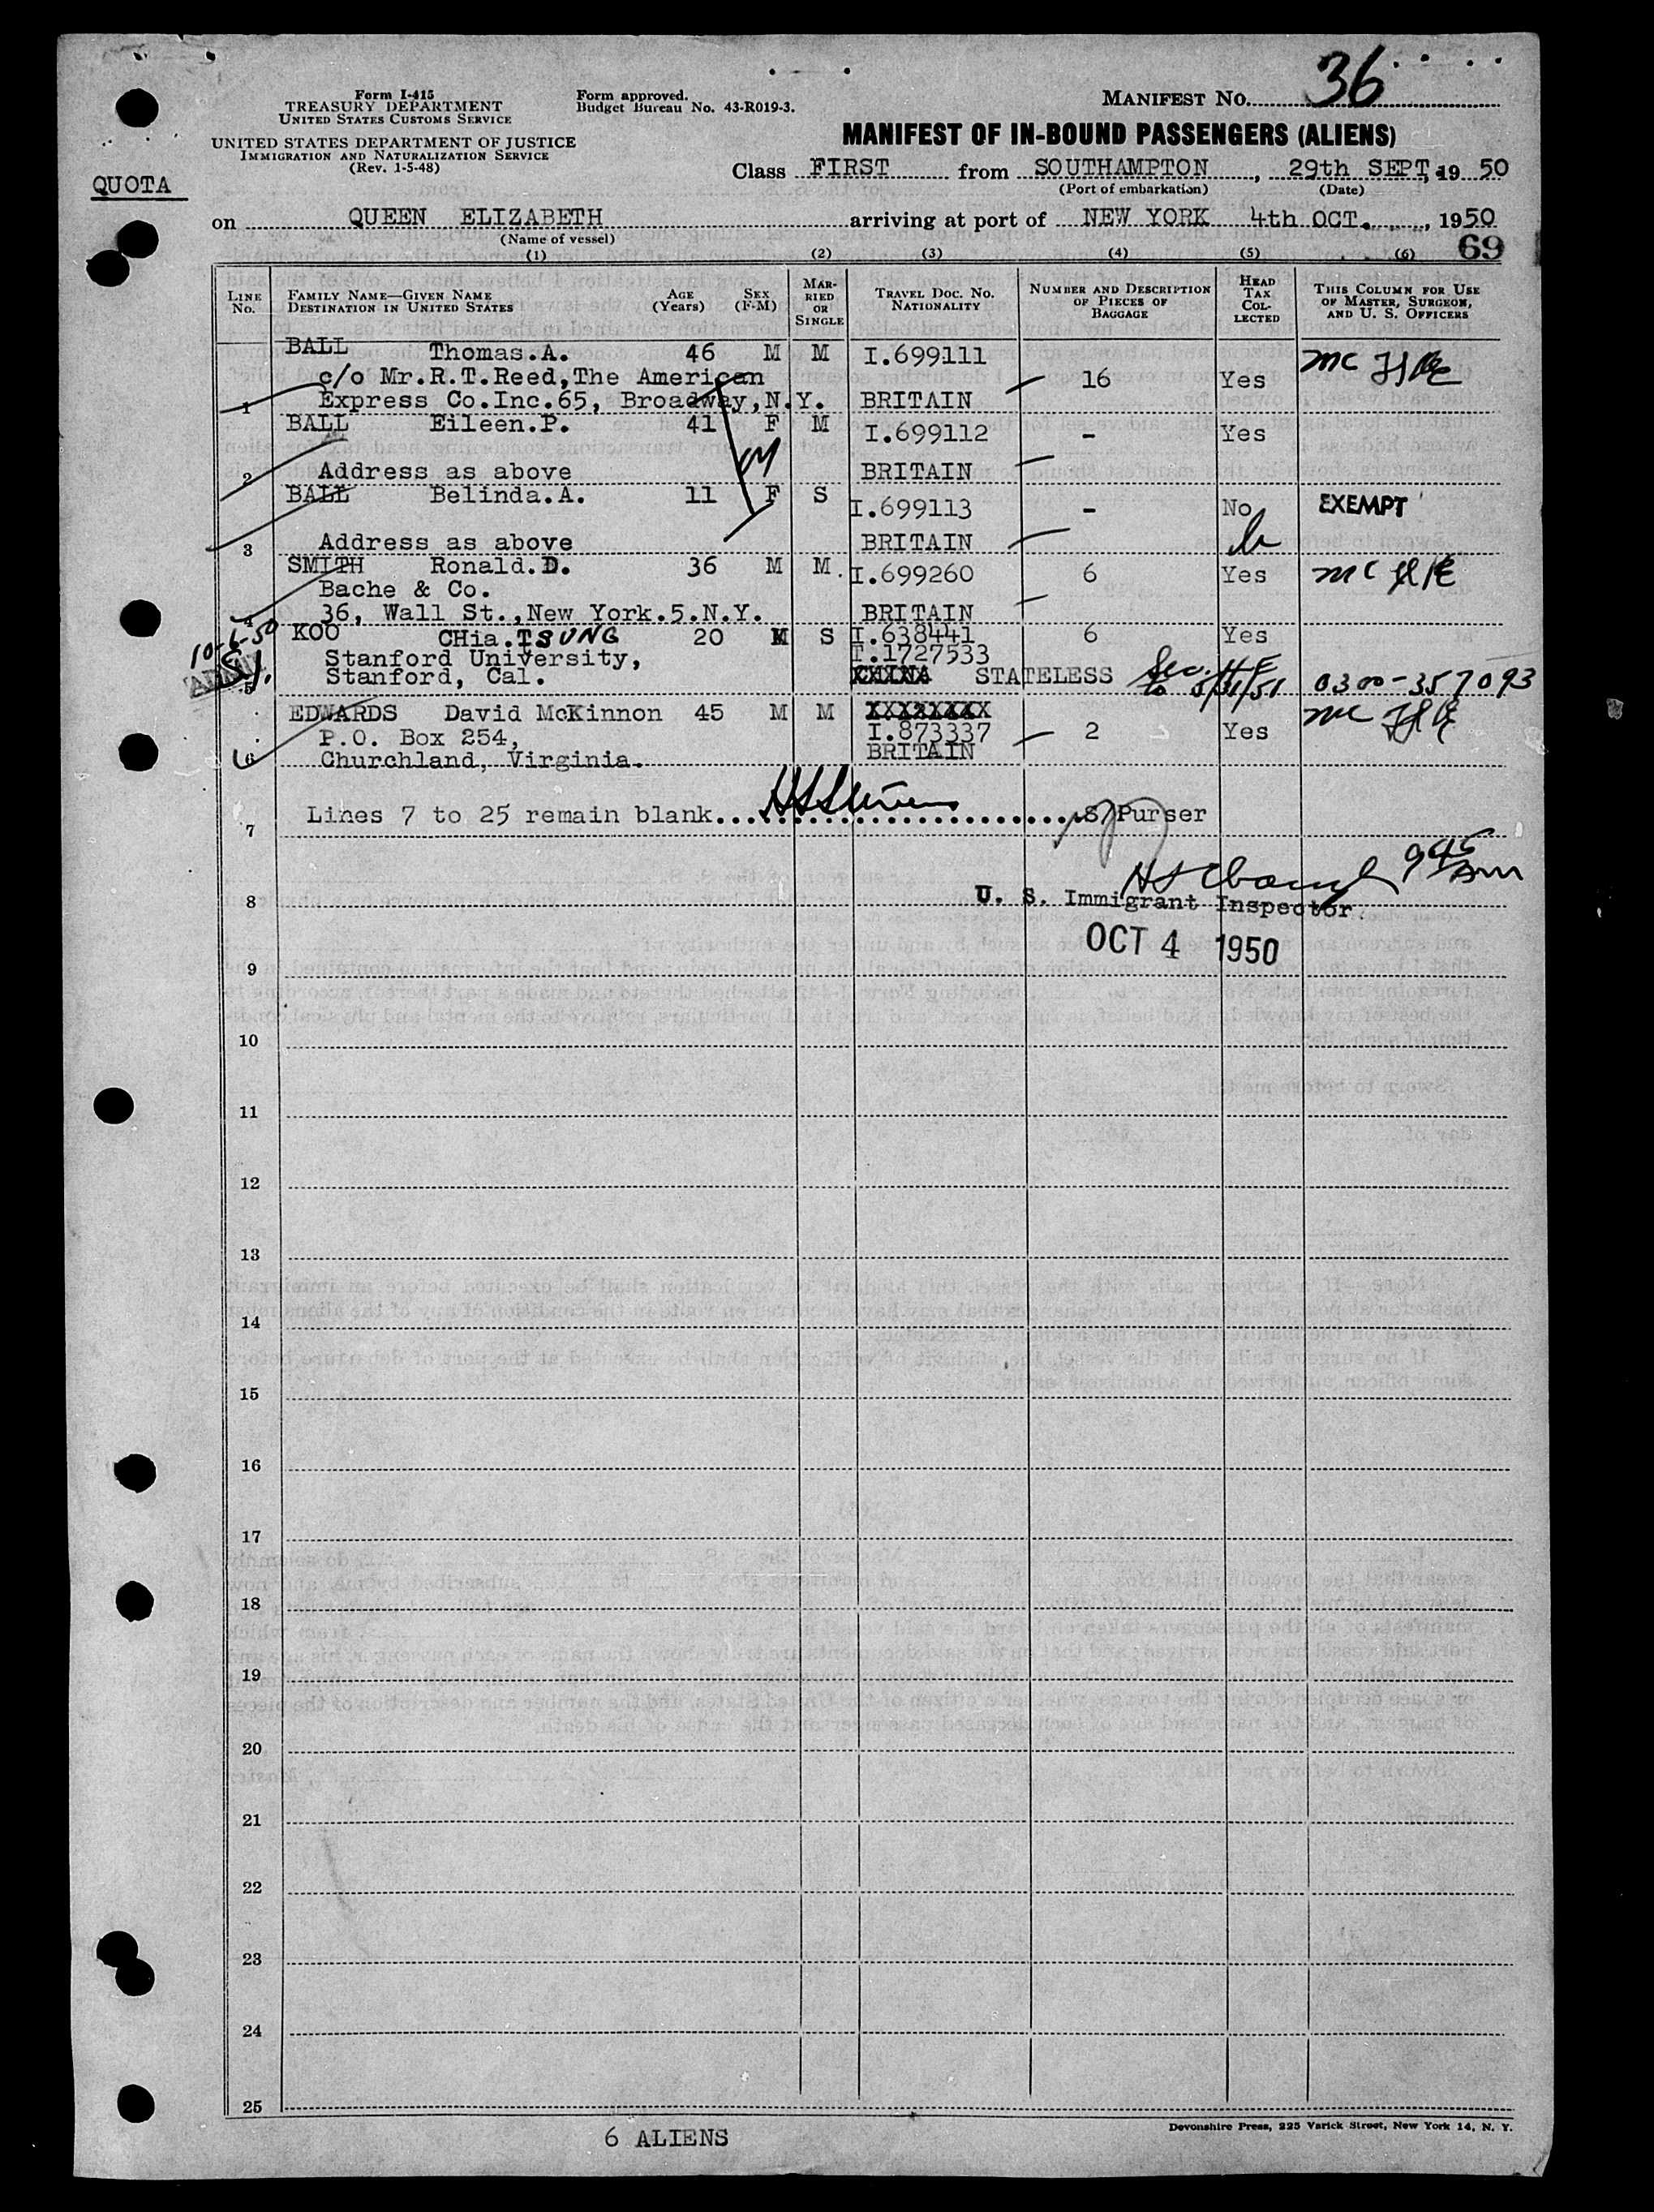 Form I-415
TREASURY DEPARTMENT
UNITED STATES CUSTOMS SERVICE
UNITED STATES DEPARTMENT OF JUSTICE
IMMIGRATION AND NATURALIZATION SERVICE
(Rev. 1-5-48)
Form approved.
Budget Bureau No. 43-R019-3.
MANIFEST NO. 36
MANIFEST OF IN-BOUND PASSENGERS (ALIENS)
QUOTA
Class FIRST from SOUTHAMPTON, 29th SEPT, 1950
(Port of embarkation) (Date)
on QUEEN ELIZABETH arriving at port of NEW YORK 4th OCT., 1950
(Name of vessel)
69
(1) (2) (3) (4) (5) (6)
LINE NO. FAMILY NAME—GIVEN NAME DESTINATION IN UNITED STATES AGE (YEARS) SEX (F-M) MARRIED OR SINGLE TRAVEL DOC. NO. NATIONALITY NUMBER AND DESCRIPTION OF PIECES OF BAGGAGE HEAD TAX COLLECTED THIS COLUMN FOR USE OF MASTER, SURGEON, AND U. S. OFFICERS
BALL Thomas.A. 46 M M I.699111
c/o Mr.R.T.Reed,The American 16 Yes
1 Express Co.Inc.65, Broadway,N.Y. BRITAIN
BALL Eileen.P. 41 F M I.699112 - Yes
2 Address as above BRITAIN
BALL Belinda.A. 11 F S I.699113 - No EXEMPT
3 Address as above BRITAIN
SMITH Ronald.D. 36 M M. I.699260 6 Yes
Bache & Co.
4 36, Wall St.,New York.5.N.Y. BRITAIN
10-6-50 KOO CHia.TSUNG 20 M S I.638441 6 Yes
Stanford University, T.1727533
5 Stanford, Cal. CHINA STATELESS Sec. 4E to 5/31/51 0300-357093
EDWARDS David McKinnon 45 M M XXXXXXXX
P.O. Box 254, I.873337 2 Yes
6 Churchland, Virginia. BRITAIN
7 Lines 7 to 25 remain blank. S/Purser
945 Am
8 U. S. Immigrant Inspector
OCT 4 1950
9
10
11
12
13
14
15
16
17
18
19
20
21
22
23
24
25
6 ALIENS
Devonshire Press, 225 Varick Street, New York 14, N. Y.